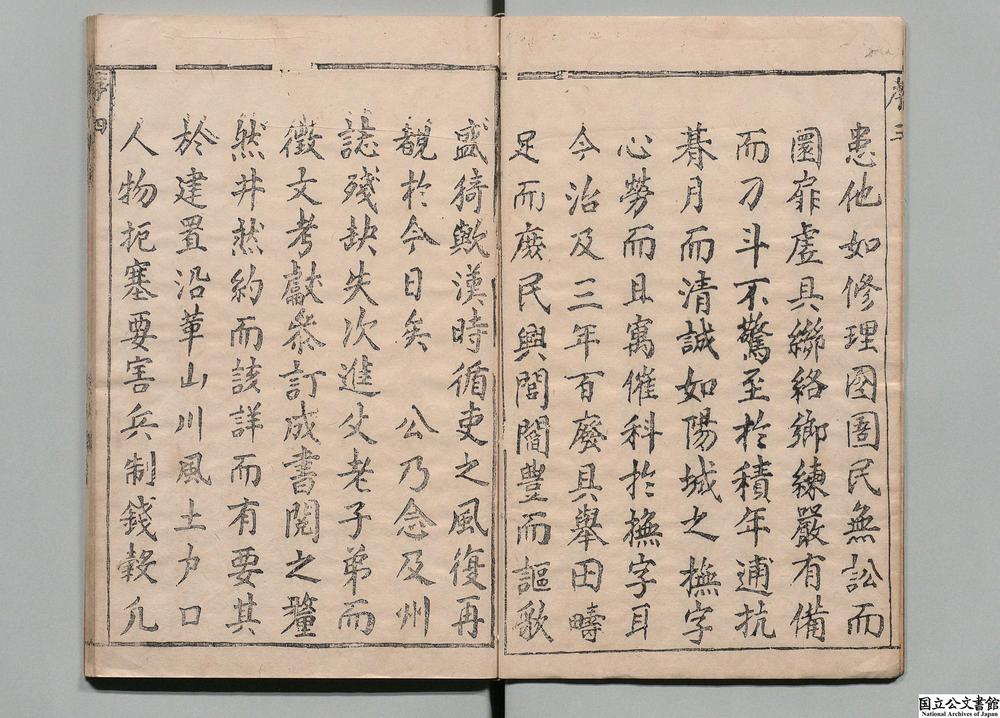 序三
患他如修理囹圄民無訟而
圜扉虛具聯絡鄉練嚴有備
而刀斗不驚至於積年逋抗
朞月而清誠如陽城之撫字
心勞而且寓催科於撫字耳
今治及三年百廢具舉田疇
足而廢民興閭閻豐而謳歌
盛猗歟漢時循吏之風復再
覩於今日矣 公乃念及州
誌殘缺失次進父老子弟而
徵文考獻叅訂成書閱之釐
然井然約而該詳而有要其
於建置沿革山川風土户口
人物扼塞要害兵制錢穀凢
序四
国立公文書館
National Archives of Japan